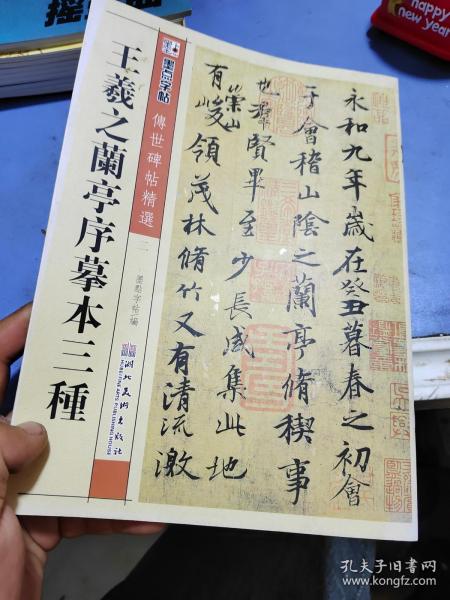 王羲之蘭亭序摹本三種
墨点字帖
傳世碑帖精選
二
墨點字帖 編
湖北美術出版社
HUBEI FINE ARTS PUBLISHING HOUSE
永和九年歲在癸丑暮春之初會
于會稽山陰之蘭亭脩稧事
也羣賢畢至少長咸集此地
有崇山峻領茂林脩竹又有清流激
happy
new year
孔夫子旧书网
www.kongfz.com